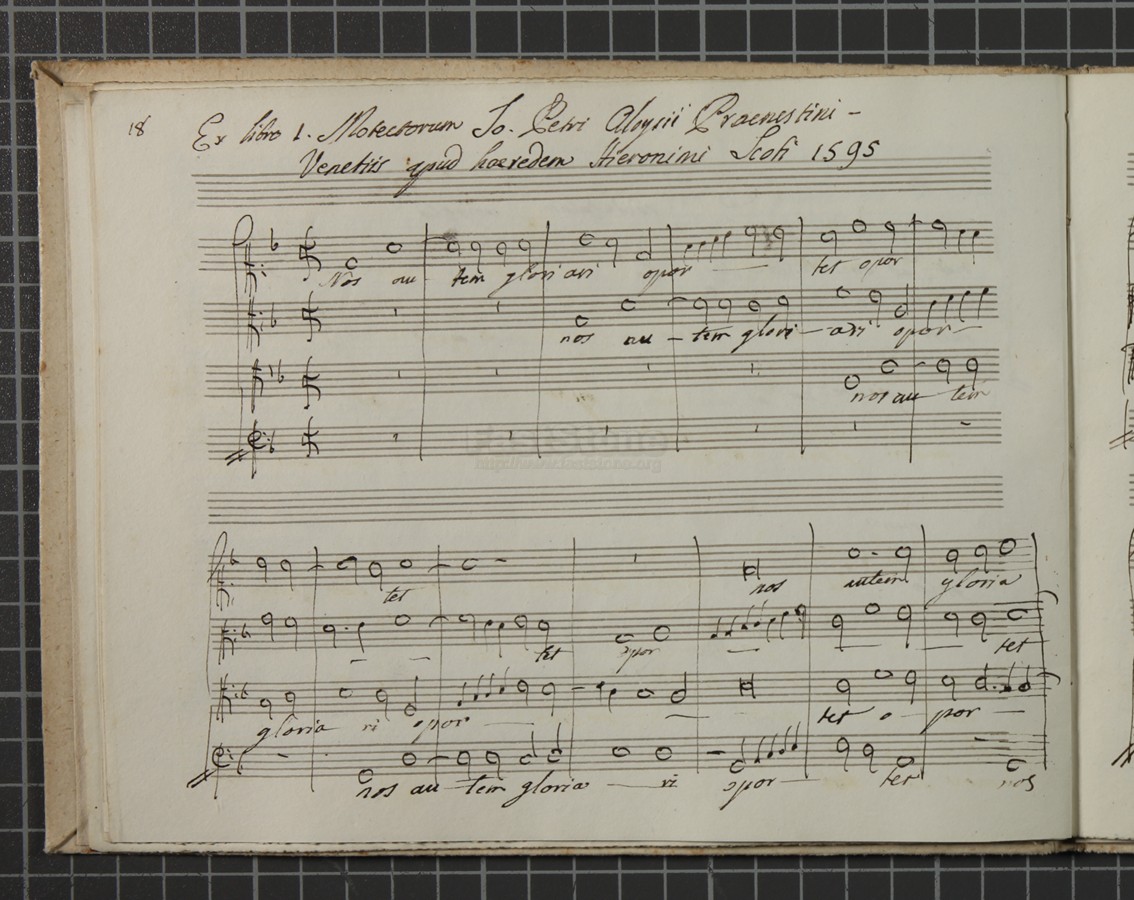 18
Ex libro 1. Motectorum Io. Petri Aloysii Praenestini -
Venetiis apud haeredem Hieronimi Scoti 1595
Nos au - tem gloriari opor - tet opor
nos au - tem glori - ari opor -
nos au - tem
FastStone
http://www.faststone.org
tet nos autem gloria
tet opor - tet
gloria ri opor - tet o - por -
nos au - tem gloria - ri opor - tet nos